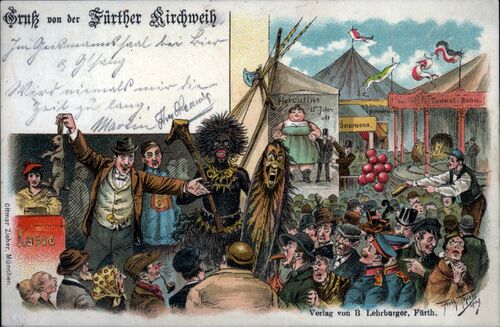 Gruß von der Fürther Kirchweih
Im Geismannssaal bei Bier
& Gsang
Wird niemals mir die
Zeit zu lang.
Martin
Herculina
15 Jahre
alt
Tunnel-Bahn.
Kasse
Ottmar Zieher, München.
Verlag von B Lehrburger, Fürth.